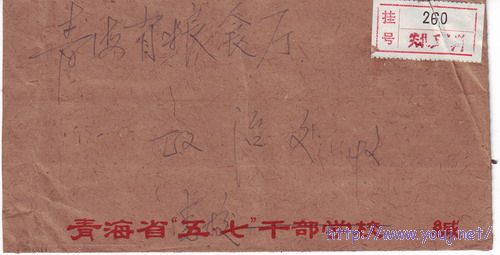 挂号 260
青海省粮食厅
政治处 收
青海省"五·七"干部学校 缄
http://www.youj.net/